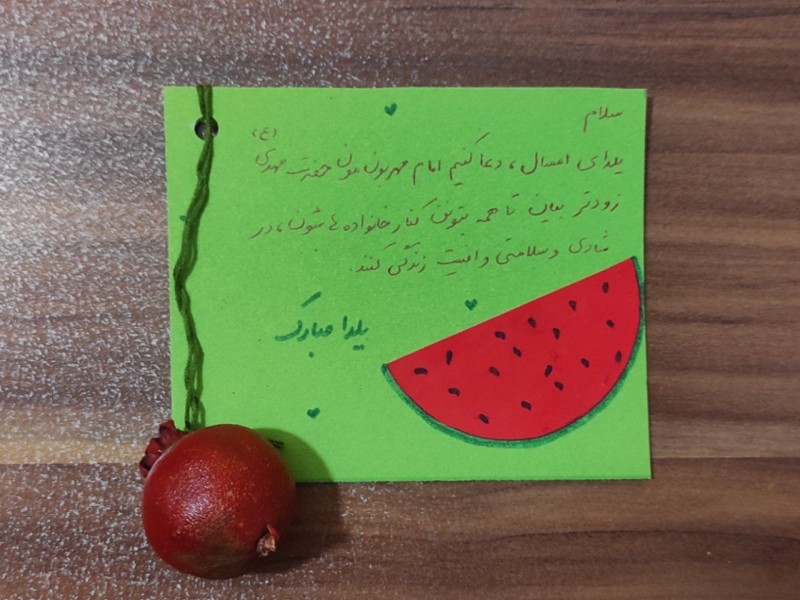 سلام
یلدای امسال، دعا کنیم امام مهربونمون حضرت مهدی (ع)
زودتر بیان تا همه بتونن کنار خانواده هاشون، در
شادی و سلامتی و امنیت زندگی کنند.
یلدا مبارک